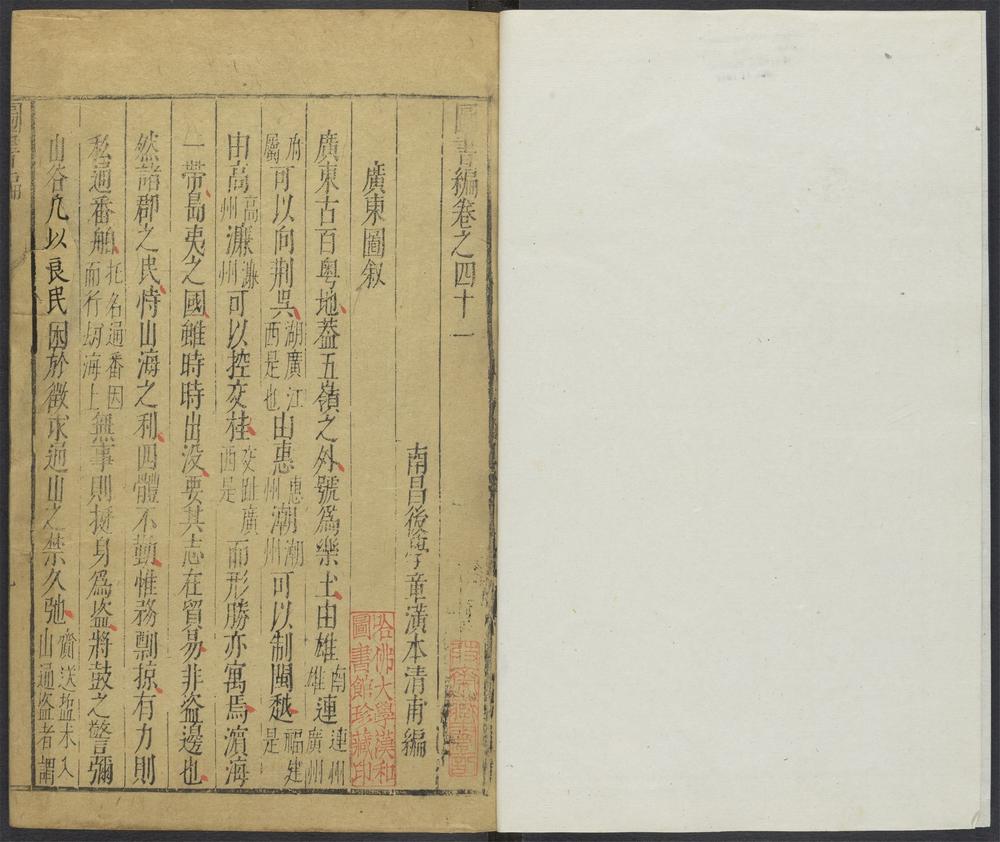 圖書編卷之四十一
南昌後學章潢本清甫編
廣東圖叙
廣東古百粤地蓋五嶺之外號爲樂土由雄南雄連連州廣州
府屬可以向荆呉湖廣江西是也由惠惠州潮潮州可以制閩越福建是
由高高州濂濂州可以控交桂交趾廣西是而形勝亦寓焉濵海
一帶島夷之國雖時時出没要其志在貿易非盗邊也
然諸郡之民恃山海之利四體不勤惟務剽掠有力則
私通番舶托名通番因而行刼海上無事則挺身爲盗將鼓之警彌
山谷凡以良民困於徵求通山之禁久弛齎送塩米入山通盗者謂
哈佛大學漢和圖書館珍藏印
圖書編